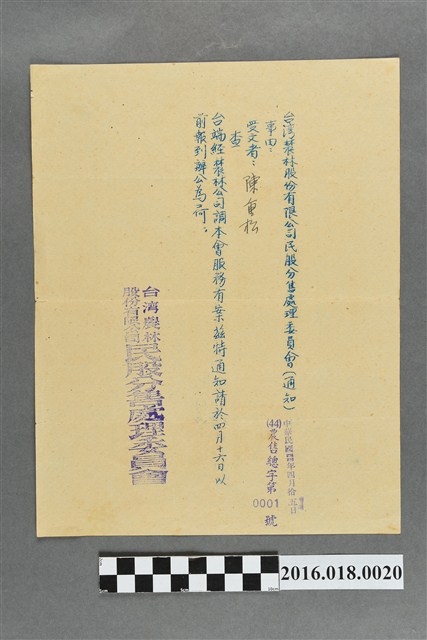 台湾農林股份有限公司民股分售處理委員會(通知)
中華民國四四年四月拾五日
(44)農售總字第0001號
事由：
受文者：陳重松
查
台端經農林公司調本會服務有案茲特通知請於四月十六日以
前報到辦公為荷：
台湾農林
股份有限公司
民股分售處理委員會
2016.018.0020